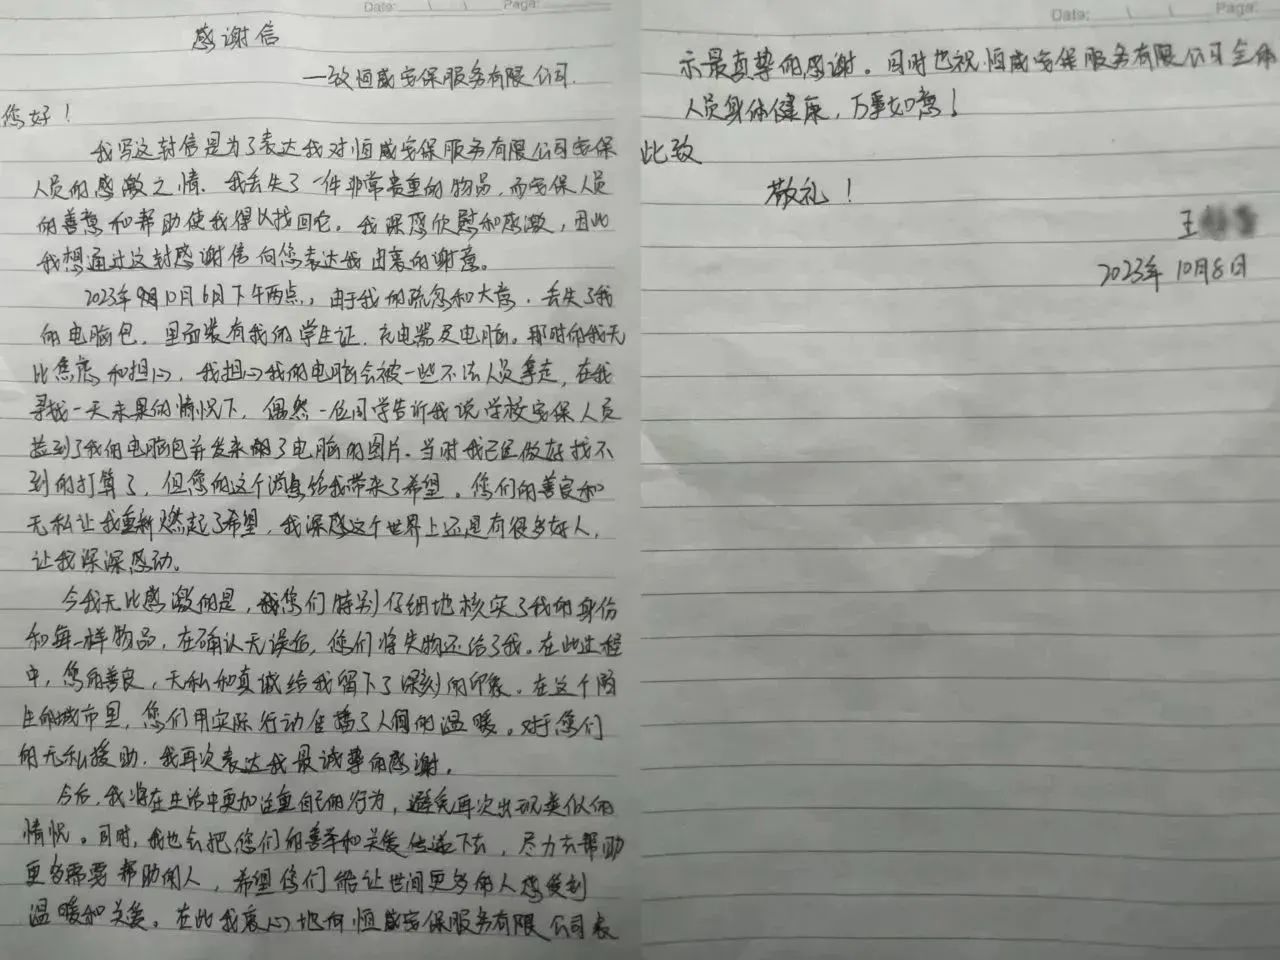 Date: \ \ Page:
感谢信
—致恒威安保服务有限公司.
您好！
我写这封信是为了表达我对恒威安保服务有限公司安保
人员的感激之情. 我丢失了一件非常贵重的物品，而安保人员
的善意和帮助使我得以找回它。我深感欣慰和感激，因此
我想通过这封感谢信向您表达我由衷的谢意。
2023年10月6日下午两点，由于我的疏忽和大意，丢失了我
的电脑包，里面装有我的学生证，充电器及电脑。那时的我无
比焦虑和担心，我担心我的电脑会被一些不法人员拿走，在我
寻找一天未果的情况下，偶然一位同学告诉我说学校安保人员
捡到了我的电脑包并发来了电脑的图片。当时我已经做好找不
到的打算了，但您的这个消息给我带来了希望。您们的善良和
无私让我重新燃起了希望，我深感这个世界上还是有很多好人，
让我深深感动。
令我无比感激的是，您们特别仔细地核实了我的身份
和每一样物品，在确认无误后，您们将失物还给了我。在此过程
中，您的善良，无私和真诚给我留下了深刻的印象。在这个陌
生的城市里，您们用实际行动传播了人间的温暖。对于您们
的无私援助，我再次表达我最诚挚的感谢。
今后，我将在生活中更加注重自己的行为，避免再次出现类似的
情况。同时，我也会把您们的善举和关爱传递下去，尽力去帮助
更多需要帮助的人，希望您们能让世间更多的人感受到
温暖和关爱。在此我衷心地向恒威安保服务有限公司表
Date: \ \ Page:
示最真挚的感谢。同时也祝恒威安保服务有限公司全体
人员身体健康，万事如意！
此致
敬礼！
王
2023年10月8日